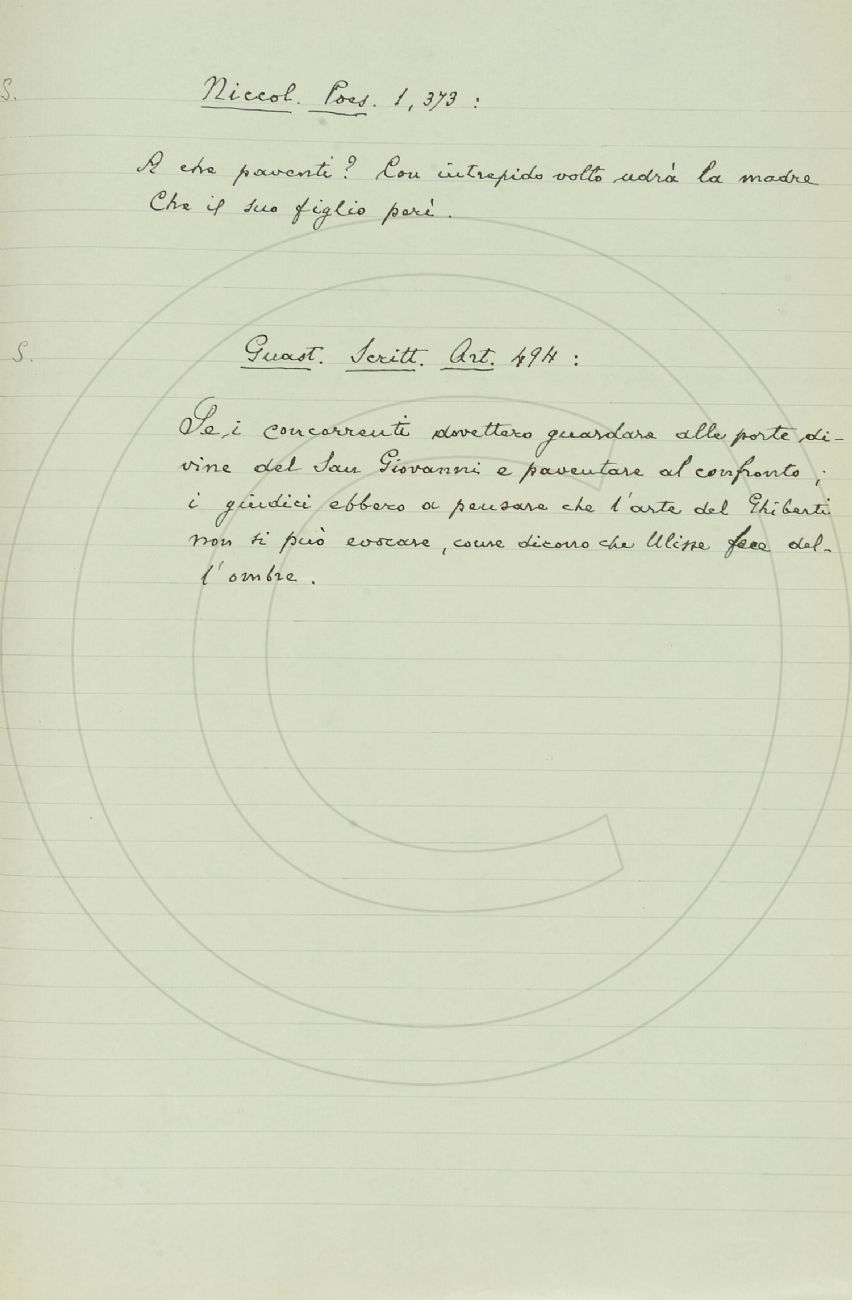 S.
Niccol. Poes. 1, 373 :
A che paventi? Con intrepido volto udrà la madre
Che il suo figlio perì.
S.
Guast. Scritt. Art. 494 :
Se i concorrenti dovettero guardare alle porte di-
vine del San Giovanni e paventare al confronto ;
i giudici ebbero a pensare che l'arte del Ghiberti
non si può evocare, come dicono che Ulisse fece del-
l'ombre.